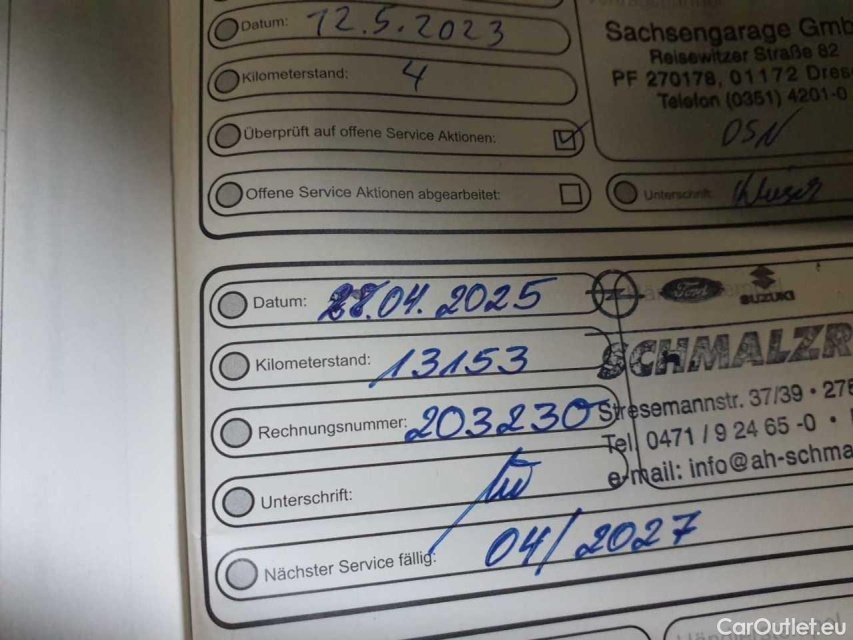 Datum: 12.5.2023
Kilometerstand: 4
Überprüft auf offene Service Aktionen:
Offene Service Aktionen abgearbeitet:
Sachsengarage Gmb
Reisewitzer Straße 82
PF 270178, 01172 Dres
Telefon (0351) 4201-0
OSN
Unterschrift:
Datum: 28.04.2025
Kilometerstand: 13153
Rechnungsnummer: 203230
Unterschrift:
Nächster Service fällig: 04/2027
Ford
SUZUKI
SCHMALZR
Stresemannstr. 37/39 • 276
Tel. 0471 / 9 24 65 -0 •
e-mail: info@ah-schma
CarOutlet.eu